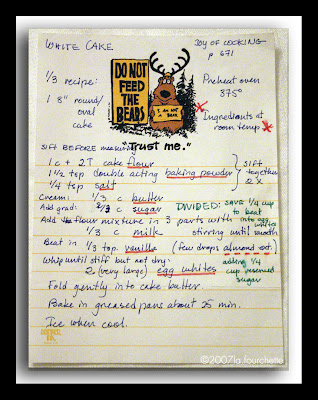 WHITE CAKE
JOY OF COOKING
p 671
1/3 recipe:
1 8" round/
oval
cake
DO NOT
FEED
THE
BEARS
I AM NOT
A BEAR
Preheat oven
375°
Ingredients at
room temp
"Trust me."
SIFT BEFORE measuring
1 c + 2T cake flour
1 1/2 tsp double acting baking powder
1/4 tsp salt
SIFT
together
2 X
Cream: 1/3 c butter
Add grad: 2/3 c sugar DIVIDED: SAVE 1/4 cup
to beat
into egg
whites
Add flour mixture in 3 parts with
1/3 c milk stirring until smooth
Beat in 1/3 tsp. vanilla (few drops almond ext.)
Whip until stiff but not dry: adding 1/4
cup reserved
sugar
2 (very large) egg whites
Fold gently into cake batter.
Bake in greased pans about 25 min.
Ice when cool.
©2007la.fourchette